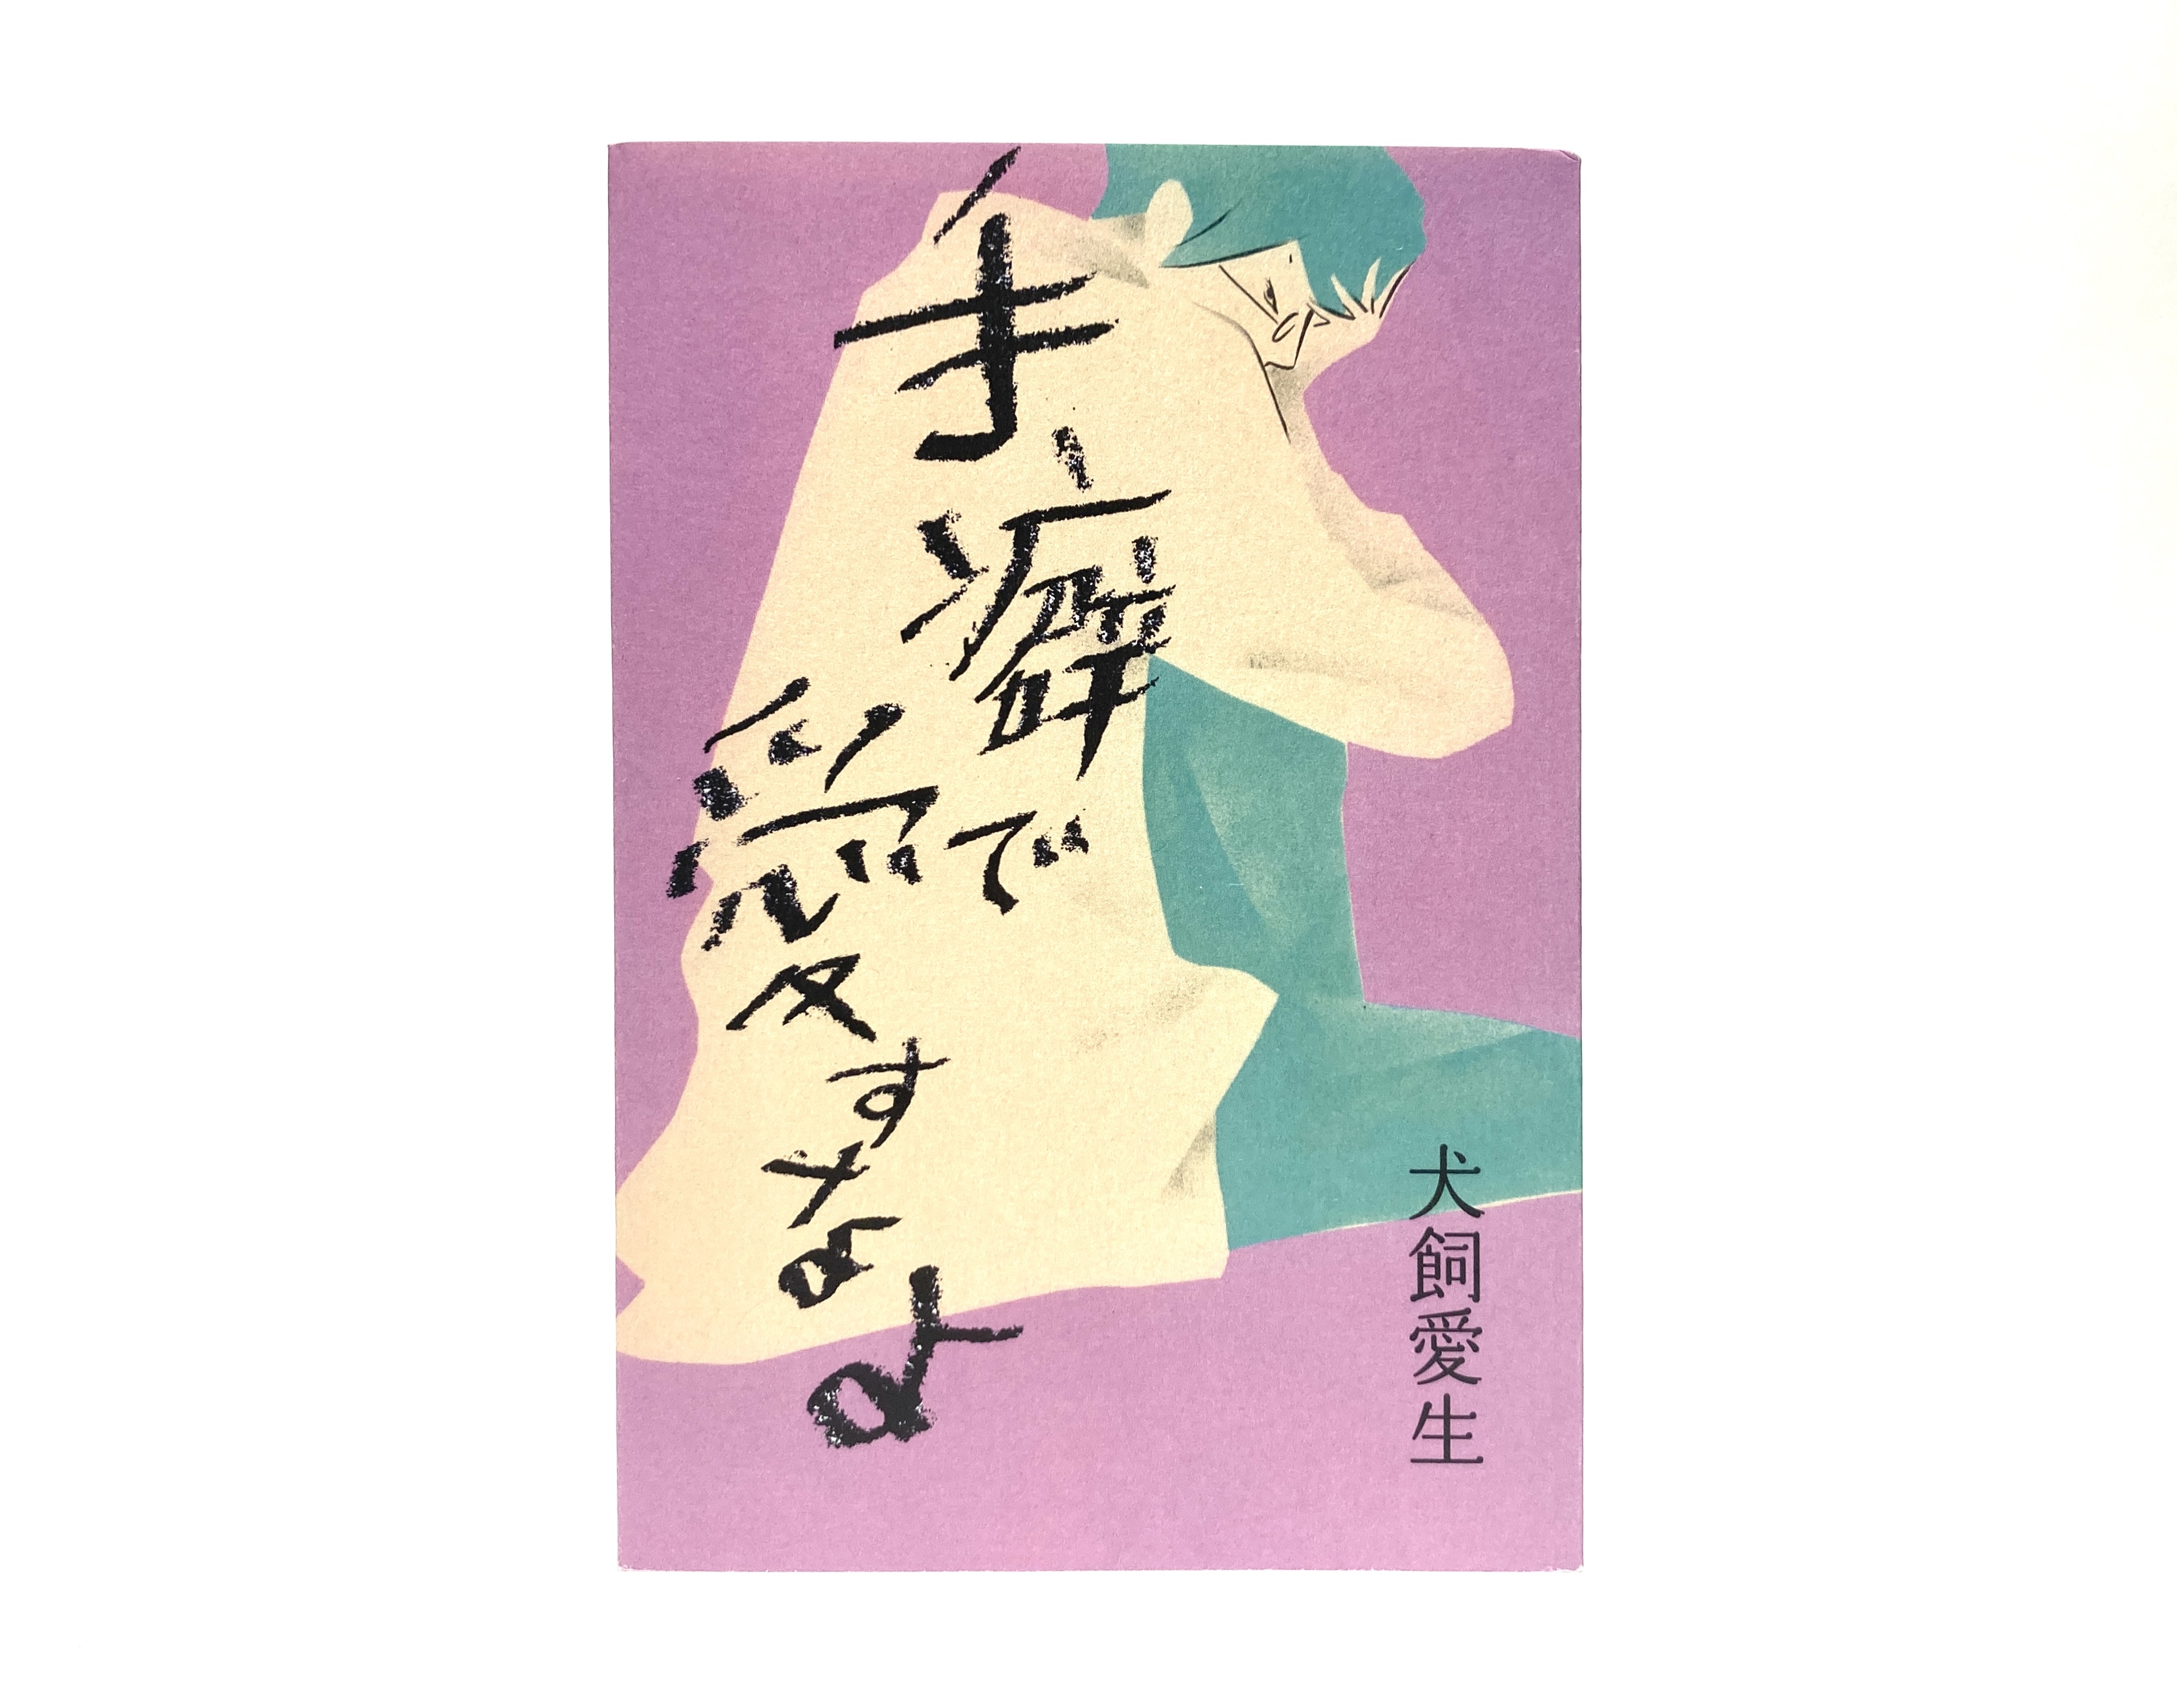 手癖で
愛すなよ
犬飼愛生